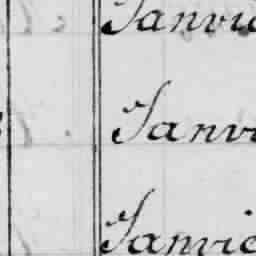 Janvie
Janvi
Janvie